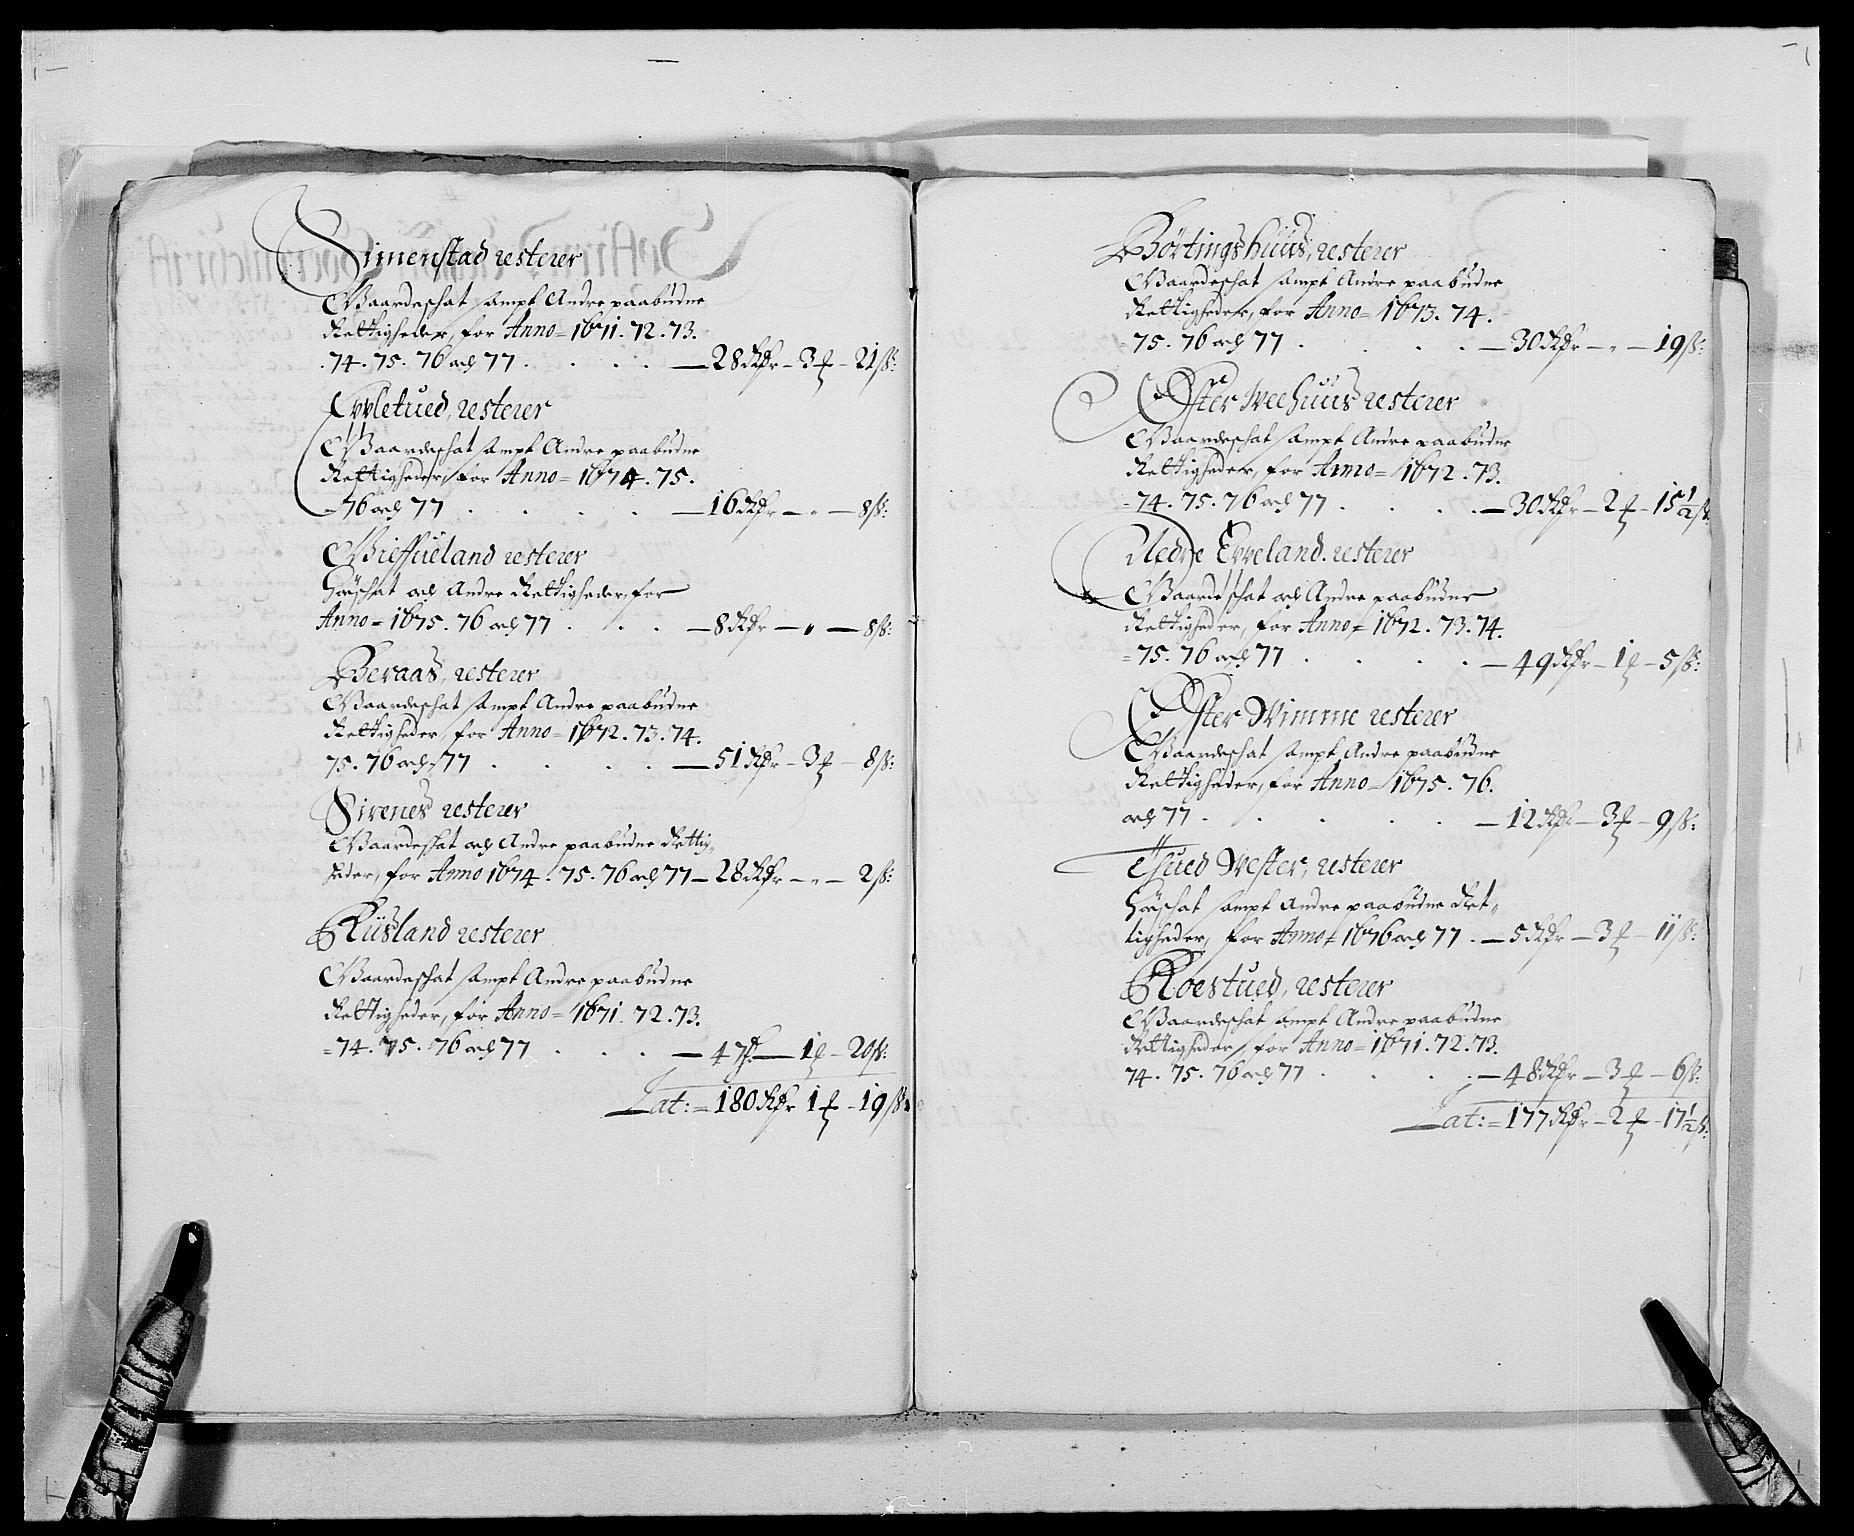 Simenstad resterer
Gaardeschat sampt Andre paabudne
Rettigheder, for Anno = 1671. 72. 73.
74. 75. 76 och 77 . . . . — 28 Rdr – 3 ƒ – 21 ß:
Eppletued, resterer
Gaardeschat sampt Andre paabudne
Rettigheder, for Anno = 1674. 75.
76 och 77 . . . . — 16 Rdr – „ – 8 ß:
Gieffueland resterer
Hörschat och Andre Rettigheder, for
Anno = 1675. 76 och 77 . . . — 8 Rdr – „ – 8 ß:
Beraas, resterer
Gaardeschat sampt Andre paabudne
Rettigheder, for Anno = 1672. 73. 74.
75. 76 och 77 . . . . — 51 Rdr – 3 ƒ – 8 ß:
Sirenes resterer
Gaardeschat och Andre paabudne Rettig„
heder, for Anno 1674. 75. 76 och 77 – 28 Rdr – „ – 2 ß:
Riisland resterer
Gaardeschat sampt Andre paabudne
Rettigheder, for Anno = 1671. 72. 73.
= 74. 75. 76 och 77 . . . — 47 — 1 ƒ – 20 ß:
Lat: = 180 Rdr 1 ƒ – 19 ß
Börtingshuus, resterer
Gaardeschat sampt Andre paabudne
Rettigheder, for Anno = 1673. 74.
= 75. 76 och 77 . . . . — 30 Rdr – „ – 19 ß:
Öster Weehuus resterer
Gaardeschat sampt Andre paabudne
Rettigheder, for Anno = 1672. 73.
= 74. 75. 76 och 77 . . . . — 30 Rdr – 2 ƒ – 15 1/2 ß
Nedre Eppeland. resterer
Gaardeschat och Andre paabudne
Rettigheder, for Anno = 1672. 73. 74.
= 75. 76 och 77 . . . . — 49 Rdr – 1 ƒ – 5 ß:
Öster Wimme resterer
Gaardeschat sampt Andre paabudne
Rettigheder, for Anno = 1675. 76.
och 77 . . . . . — 12 Rdr – 3 ƒ – 9 ß:
Tued Wester, resterer
Hörschat sampt Andre paabudne Ret„
tigheder, for Anno = 1676 och 77 . — 5 Rdr – 3 ƒ – 11 ß:
Roestued, resterer
Gaardeschat sampt Andre paabudne
Rettigheder, for Anno = 1671. 72. 73.
74. 75. 76 och 77 . . . — 48 Rdr – 3 ƒ – 6 ß:
Lat: = 177 Rdr – 2 ƒ – 17 1/2 ß: